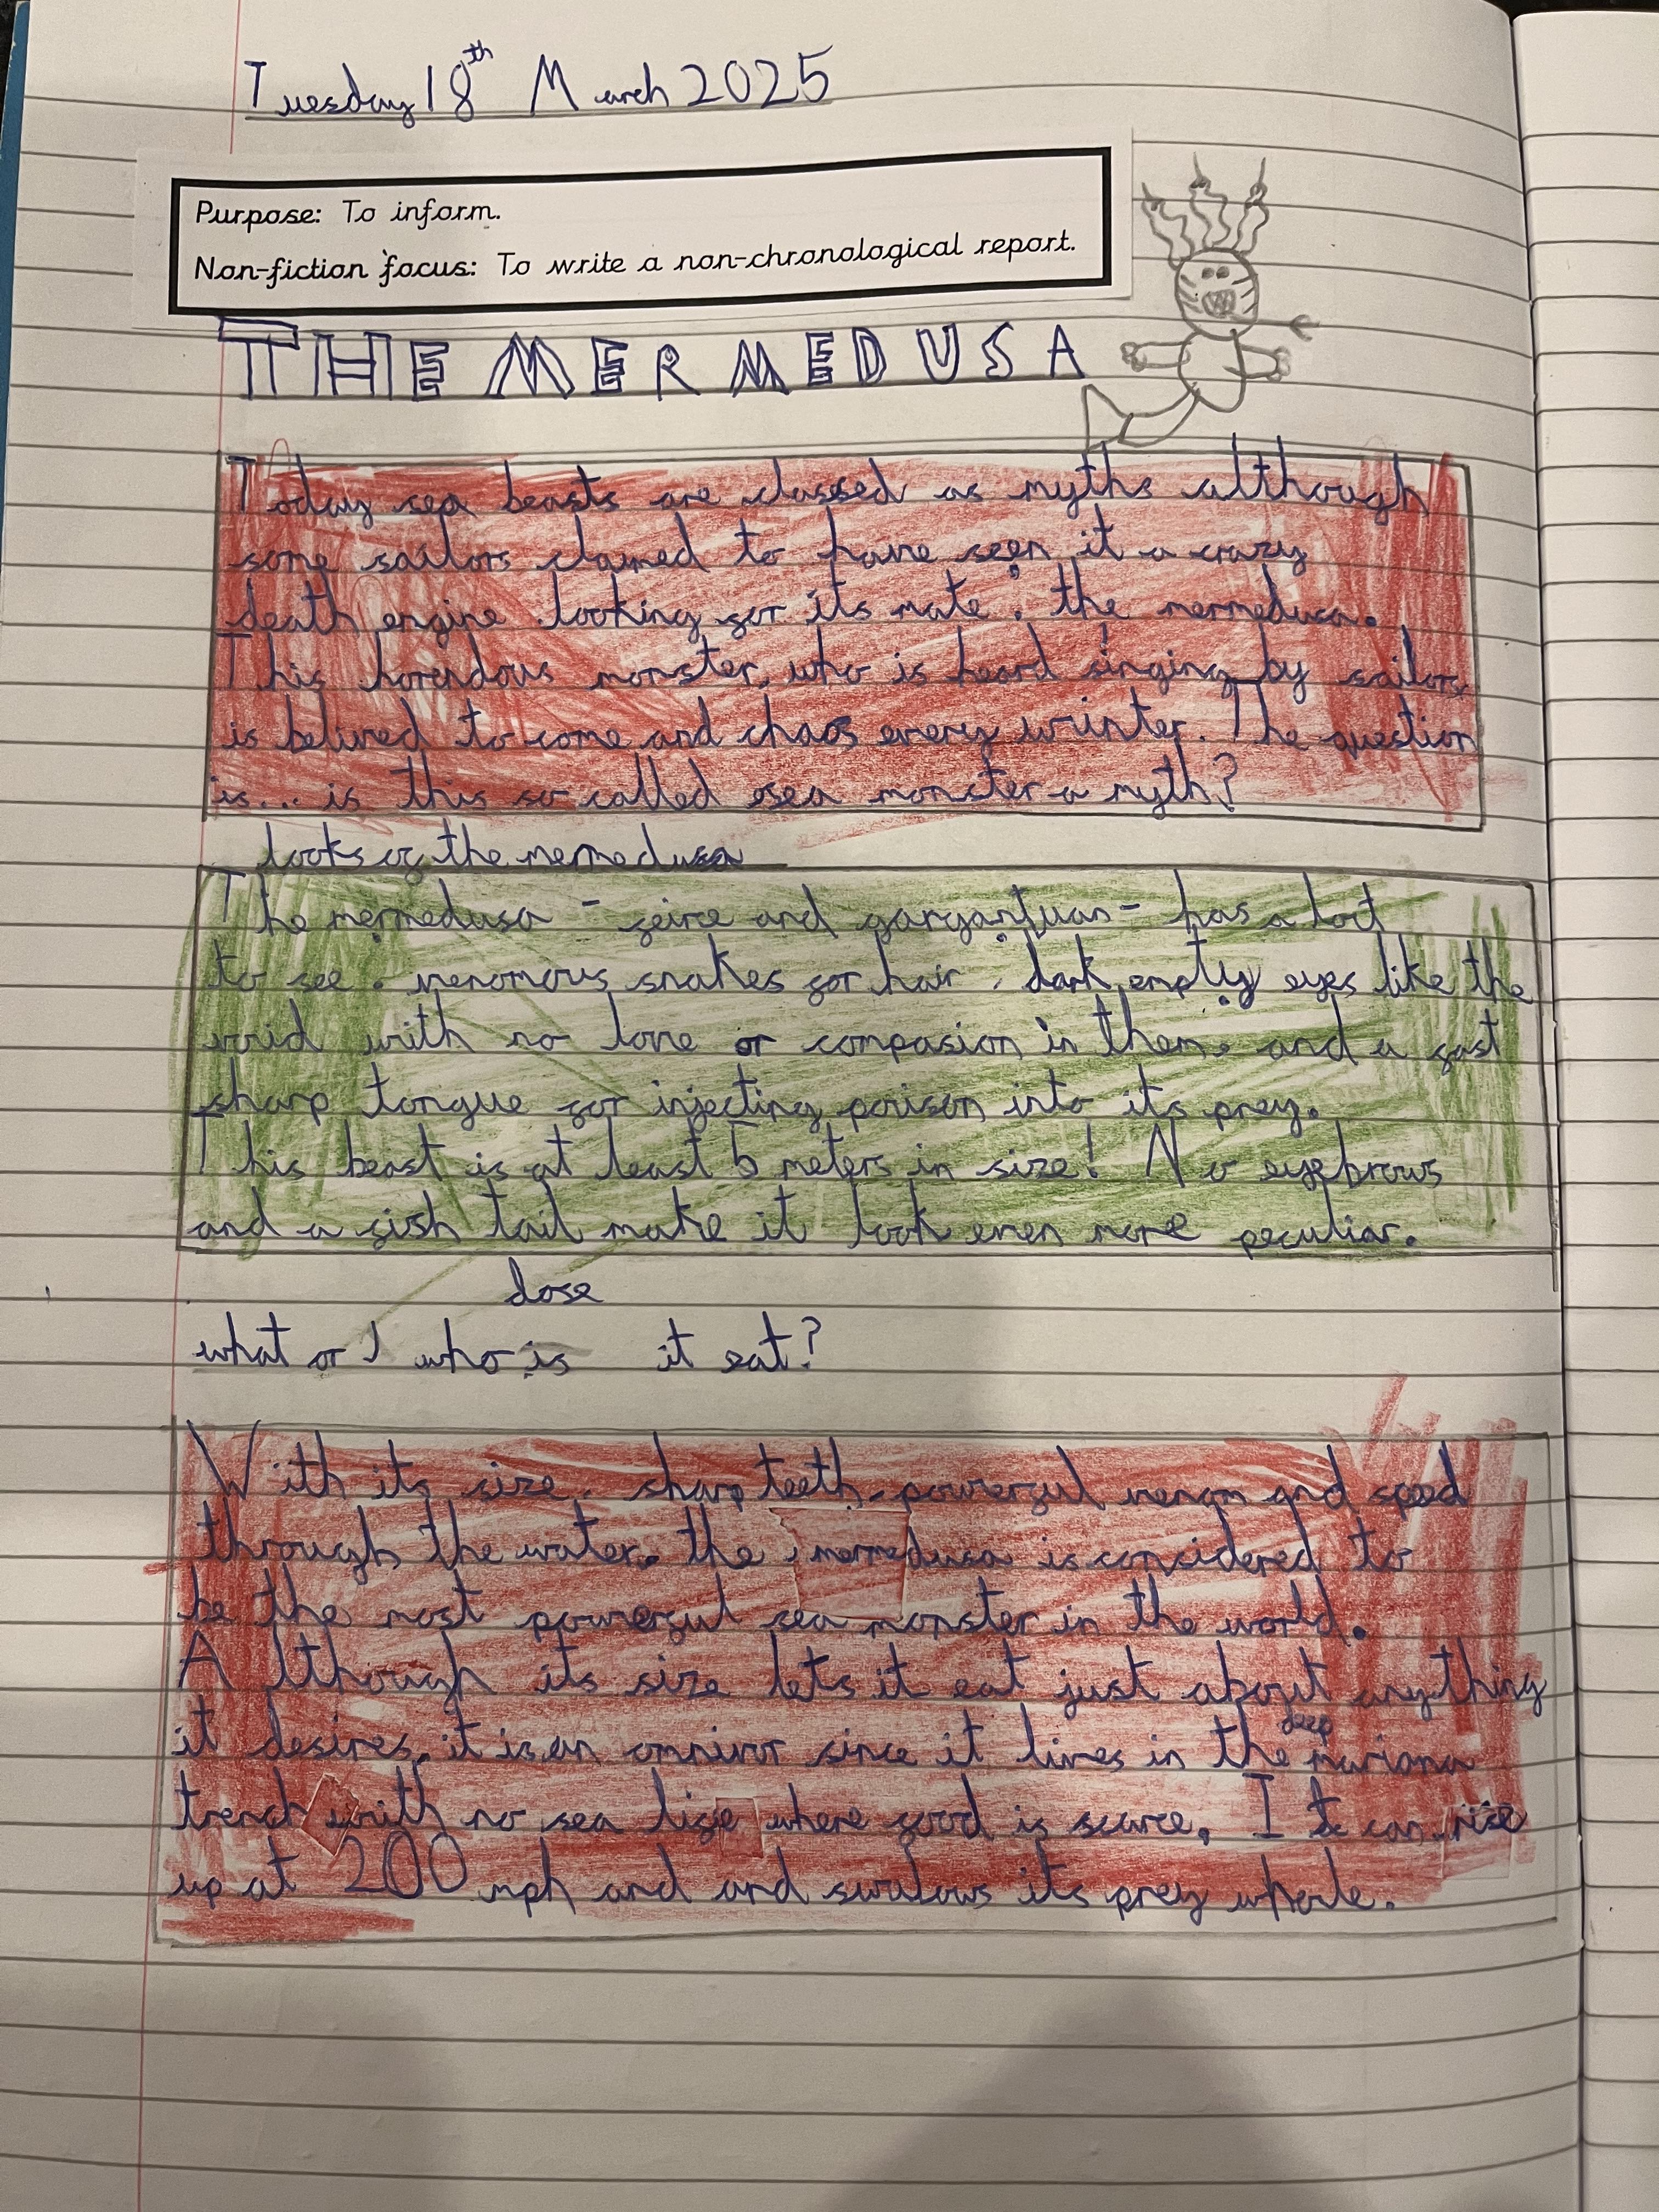 Tuesday 18th March 2025
Purpose: To inform.
Non-fiction focus: To write a non-chronological report.
THE MERMEDUSA
Today sea beasts are classed as myths although
some sailors clamed to have seen it a crazy
death engine looking for its mate : the mermedusa.
This horendous monster, who is heard singing by sailors,
is belived to come and chaos every winter. The question
is... is this so called sea monster a myth?
looks of the mermedusa
The mermedusa - feirce and garganfuan - has a lort
to see : venomous snakes for hair, dark empty eyes like the
void with no love or compasion in them, and a fast
sharp tongue for injecting porison into its prey.
This beast is at least 5 meters in size! No eyebrows
and a fish tail make it look even more peculiar.
dose
what or / who is it eat?
With its size, sharp teeth, powerful venom and speed
through the water, the mermedusa is considered to
be the most powerful sea monster in the world.
Although its size lets it eat just about anything
it desires, it is an omnivor since it lives in the deep mariana
trench with no sea life where food is scarce. It can rise
up at 200 mph and and swalows its prey whorle.